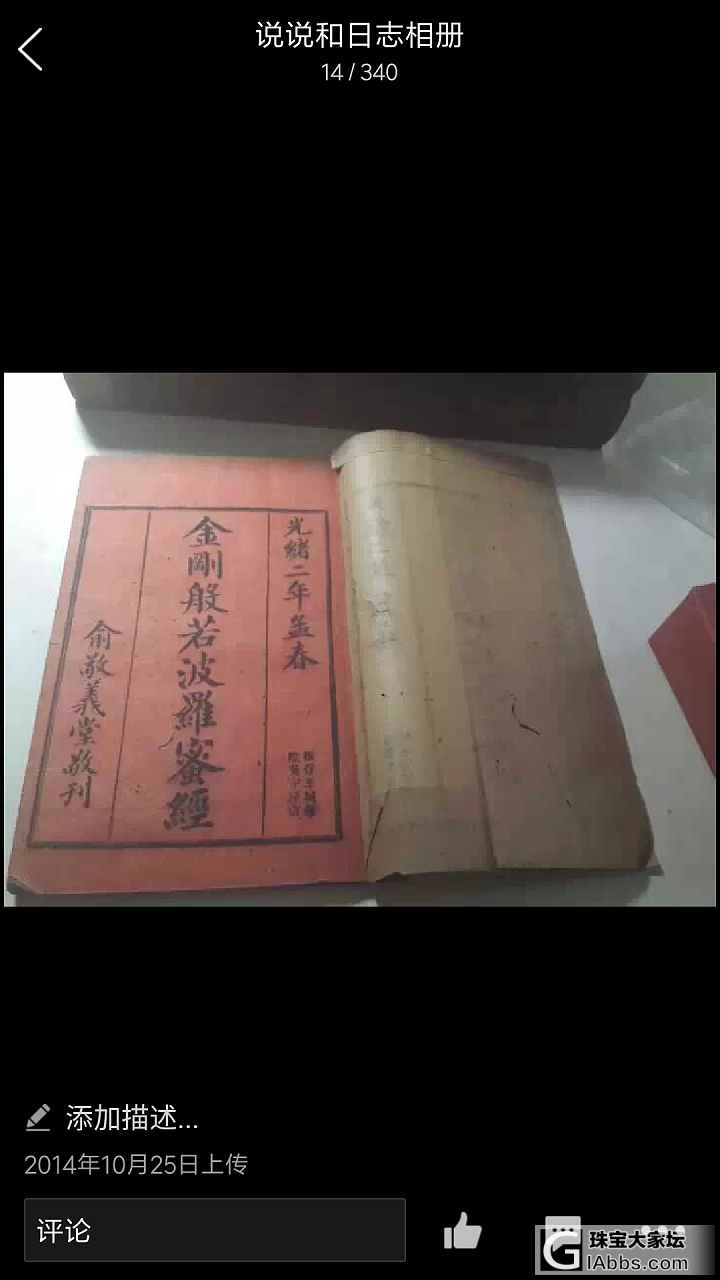 说说和日志相册
14 / 340
光緒二年孟春
金剛般若波羅蜜經
俞敬義堂敬刊
添加描述...
2014年10月25日上传
评论
珠宝大家坛
IAbbs.com